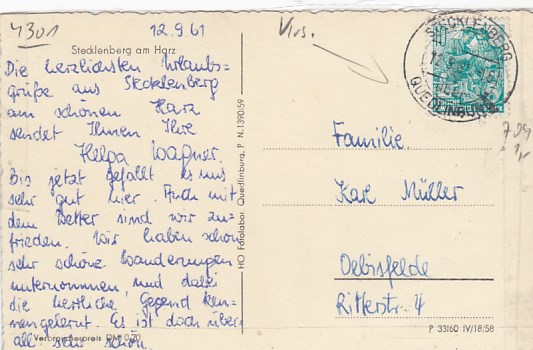 4301
12.9.61
Virs.
Stecklenberg am Harz
Die herzlichsten Urlaubs-
grüße aus Stecklenberg
am schönen Harz
sendet Ihnen Ihre
Helga Wagner.
Bis jetzt gefällt es uns
sehr gut hier. Auch mit
dem Wetter sind wir zu-
frieden. Wir haben schon
sehr schöne Wanderungen
unternommen und dabei
die herrliche Gegend ken-
nengelernt. Es ist doch über-
all sehr schön.
Verbraucherpreis DM 0,20
HO Fotolabor Quedlinburg, P N.1390/59
STECKLENBERG
QUEDLINBURG
10
Familie
Karl Müller
Oebisfelde
Ritterstr. 4
P 33160 IV/18/58